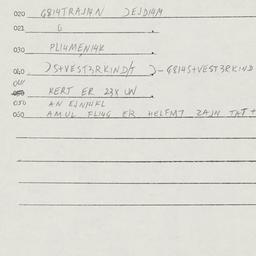 020 G8I4TRAJ14N )EJDI4M
021 G
030 PLI4MENI4K
040 )S+VEST3RKIND/T )-G8I4S+VEST3RKIND
KERT ER 23X UW
050 AN EJNI4KL
050 AMUL FLI4G ER HELFMT ZAJN TAT+